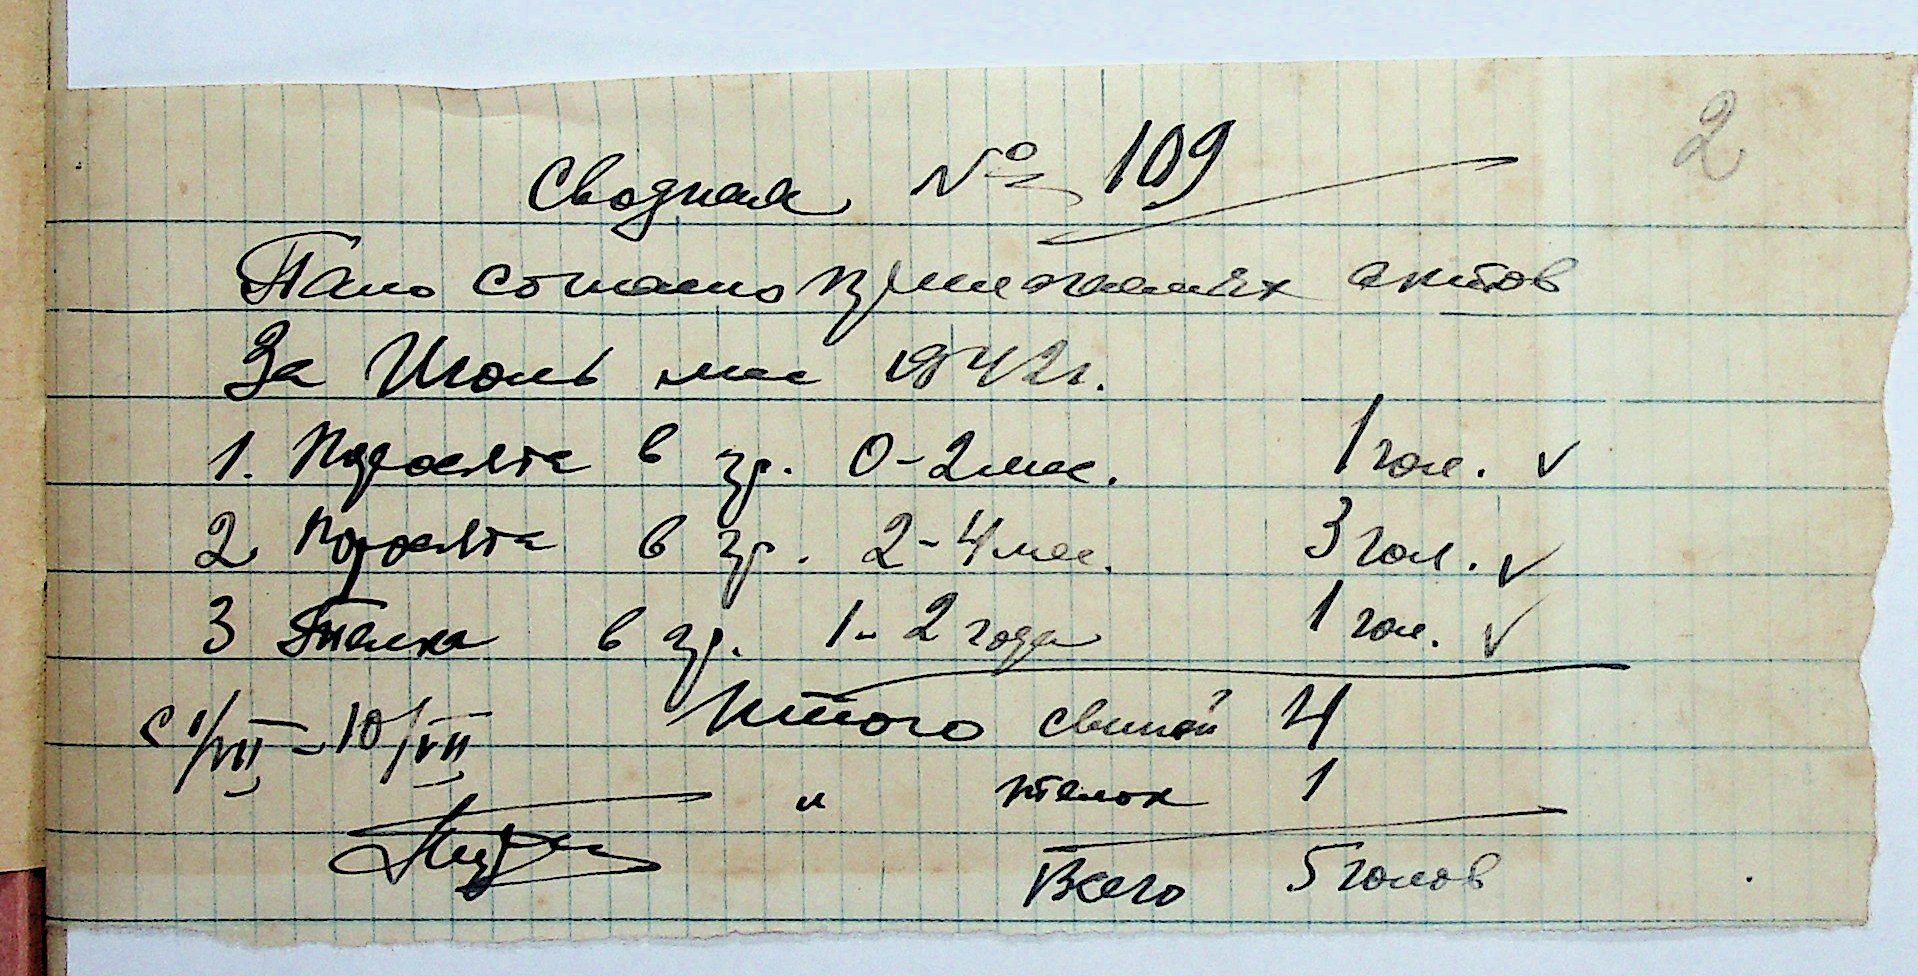 2
Сводная № 109
Пало согласно приложенных актов
За Июль мес 1942 г.
1. Поросята в зр. 0-2 мес. 1 гол. ✓
2 Поросята в зр. 2-4 мес. 3 гол. ✓
3 Телка в зр. 1-2 года 1 гол. ✓
с 1/VII - 10/VII Итого свиней 4
" телок 1
Всего 5 голов